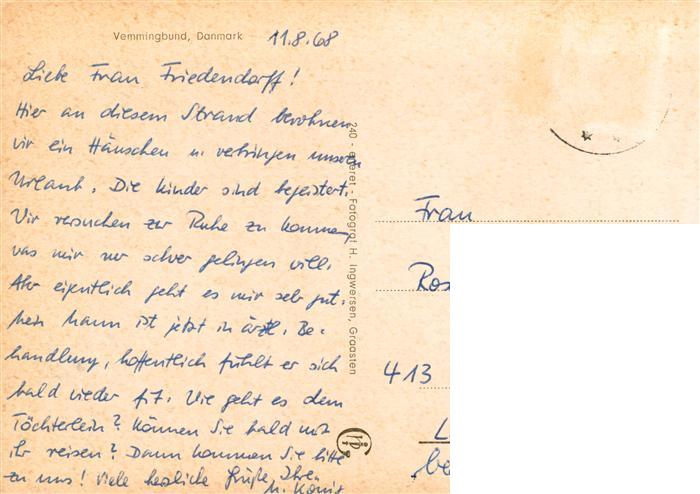 Vemmingbund, Danmark
11.8.68
Liebe Frau Friedendorff!
Hier an diesem Strand bewohnen
wir ein Häuschen u. verbringen unseren
Urlaub. Die Kinder sind begeistert.
Wir versuchen zur Ruhe zu kommen,
was mir nur schwer gelingen will.
Aber eigentlich geht es mir sehr gut.
Mein Mann ist jetzt in ärztl. Be-
handlung, hoffentlich fühlt er sich
bald wieder fit. Wie geht es dem
Töchterlein? Können Sie bald mit
ihr reisen? Dann kommen Sie bitte
zu uns! Viele herzliche Grüße, Ihre
M. König
240 - eneret - Fotograf H. Ingwersen, Graasten
Frau
Ros
413
L
be